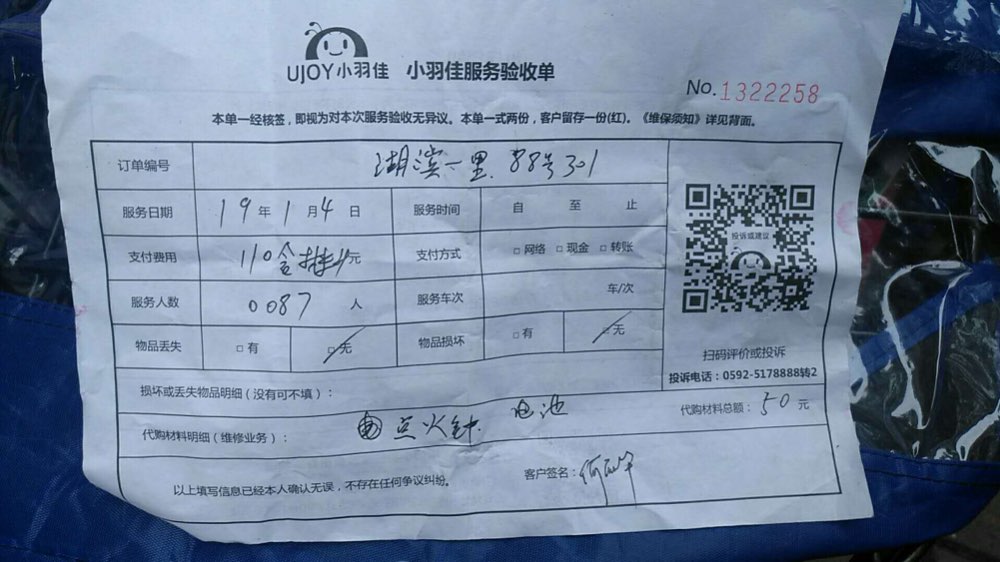 UJOY小羽佳 小羽佳服务验收单
No.1322258
本单一经核签，即视为对本次服务验收无异议。本单一式两份，客户留存一份(红)。《维保须知》详见背面。
订单编号 湖滨一里 88号301
服务日期 19年1月4日 服务时间 自 至 止
投诉或建议
支付费用 110含排 元 支付方式 □网络 □现金 □转账
服务人数 0087 人 服务车次 车/次
物品丢失 □有 □无 物品损坏 □有 □无
扫码评价或投诉
投诉电话：0592-5178888转2
损坏或丢失物品明细（没有可不填）：
代购材料明细（维修业务）： 点火针 电池 代购材料总额：50元
以上填写信息已经本人确认无误，不存在任何争议纠纷。 客户签名：